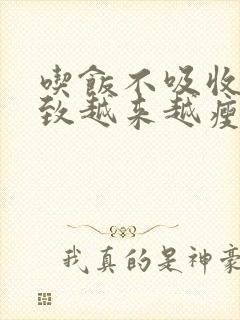 喫飯不吸收
致越来越瘦
我真的是神豪